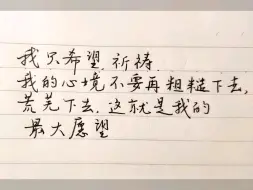 我只希望 祈祷
我的心境不要再粗糙下去,
荒芜下去.这就是我的
最大愿望